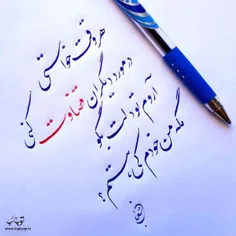 هر وقت خواستی
در مورد دیگران قضاوت کنی
آروم تو دلت بگو
مگه من خودم کی هستم؟